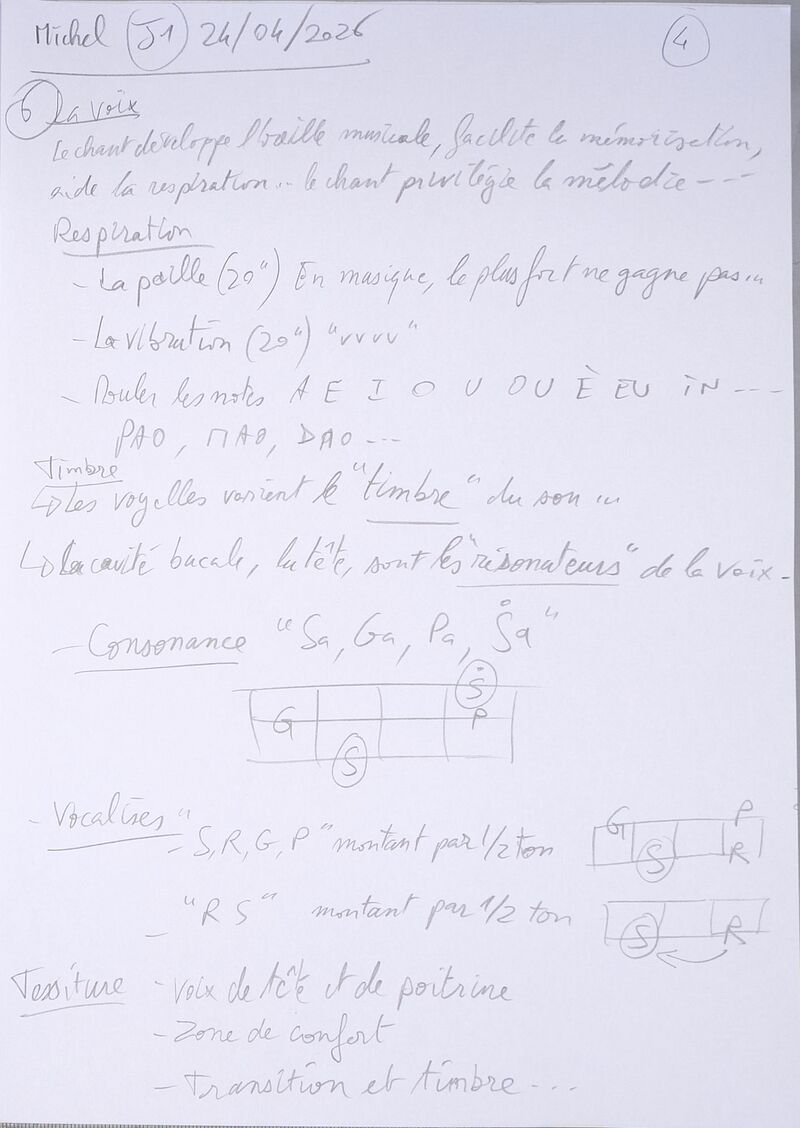 Michel J1 24/04/2026 4
6 La voix
Le chant développe l'oreille musicale, facilite la mémorisation,
aide la respiration... le chant privilégie la mélodie ----
Respiration
- La paille (20") En musique, le plus fort ne gagne pas...
- La vibration (20") "vvvv"
- Rouler les notes A E I O U OU È EU IN ---
PAO, MAO, DAO ---
Timbre
↳ Les voyelles varient le "timbre" du son ...
↳ La cavité bucale, la tête, sont les "résonateurs" de la voix -
- Consonance "Sa, Ga, Pa, Ṡa"
Ṡ
G P
S
- Vocalises "
- S, R, G, P" montant par 1/2 ton G P
S R
- "R S" montant par 1/2 ton S R
Tessiture - Voix de tête et de poitrine
- Zone de confort
- Transition et timbre ---